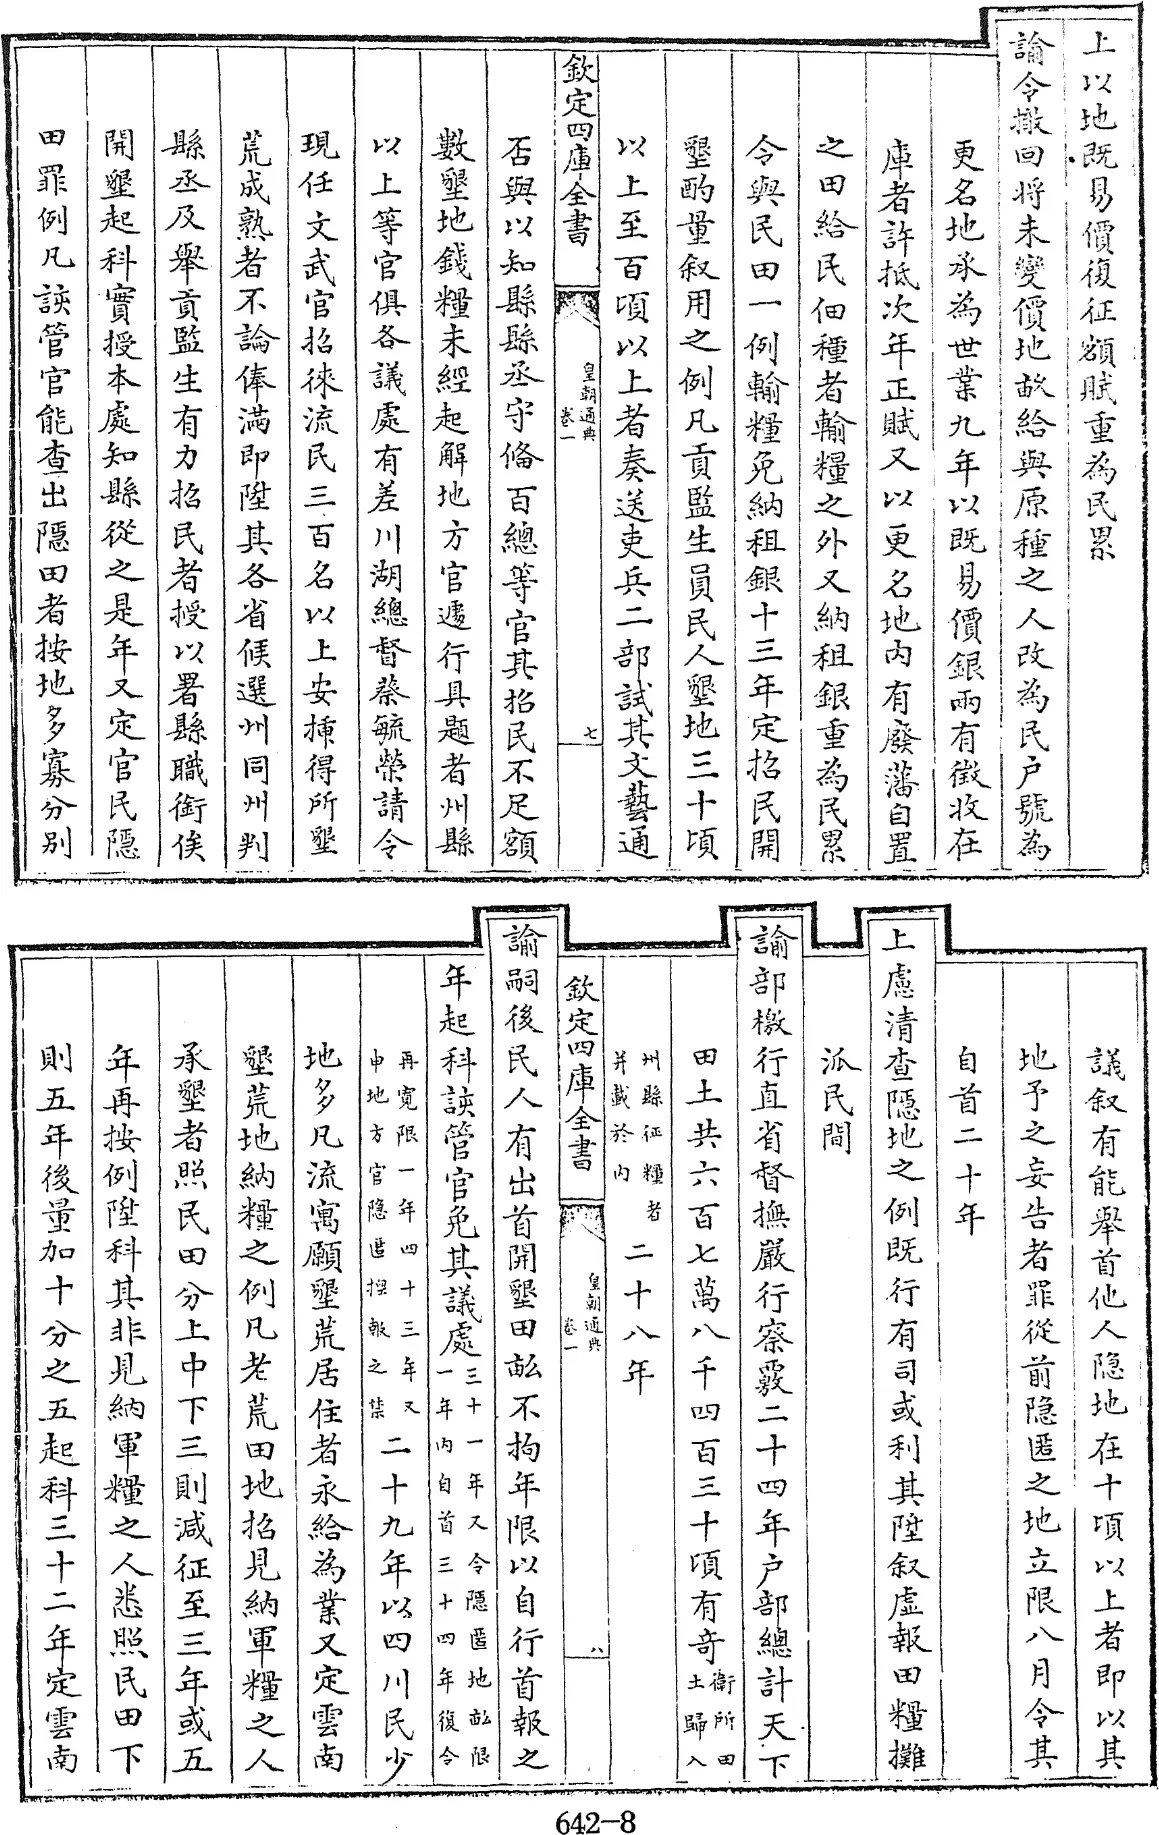 上以地既易價復征額賦重為民累
諭令撤回将未變價地畝給與原種之人改為民戸號為
更名地承為世業九年以既易價銀兩有徴收在
庫者許抵次年正賦又以更名地內有廢藩自置
之田給民佃種者輸糧之外又納租銀重為民累
令與民田一例輸糧免納租銀十三年定招民開
墾酌量叙用之例凡貢監生員民人墾地二十頃
以上至百頃以上者奏送吏兵二部試其文藝通
欽定四庫全書
皇朝通典
卷一
七
否與以知縣縣丞守備百總等官其招民不足額
數墾地錢糧未經起解地方官遽行具題者州縣
以上等官俱各議處有差川湖總督蔡毓榮請令
現任文武官招徠流民三百名以上安插得所墾
荒成熟者不論俸滿即陞其各省候選州同州判
縣丞及舉貢監生有力招民者授以署縣職銜俟
開墾起科實授本處知縣從之是年又定官民隱
田罪例凡該管官能查出隱田者按地多寡分別
議叙有能舉首他人隐地在十頃以上者即以其
地予之妄告者罪從前隐匿之地立限八月令其
自首二十年
上慮清查隱地之例既行有司或利其陞叙虛報田糧攤
派民間
諭部檄行直省督撫嚴行察覈二十四年戸部總計天下
田土共六百七萬八千四百三十頃有奇衛所田土歸入
州縣征糧者并載於內二十八年
欽定四庫全書
皇朝通典
卷一
八
諭嗣後民人有出首開墾田畝不拘年限以自行首報之
年起科該管官免其議處三十一年又令隱匿地畝限一年內自首三十四年復令
再寛限一年四十三年又申地方官隐匿揑報之禁二十九年以四川民少
地多凡流寓願墾荒居住者永給為業又定雲南
墾荒地納糧之例凡老荒田地招見納軍糧之人
承墾者照民田分上中下三則減征至三年或五
年再按例陞科其非見納軍糧之人悉照民田下
則五年後量加十分之五起科三十二年定雲南
642-8